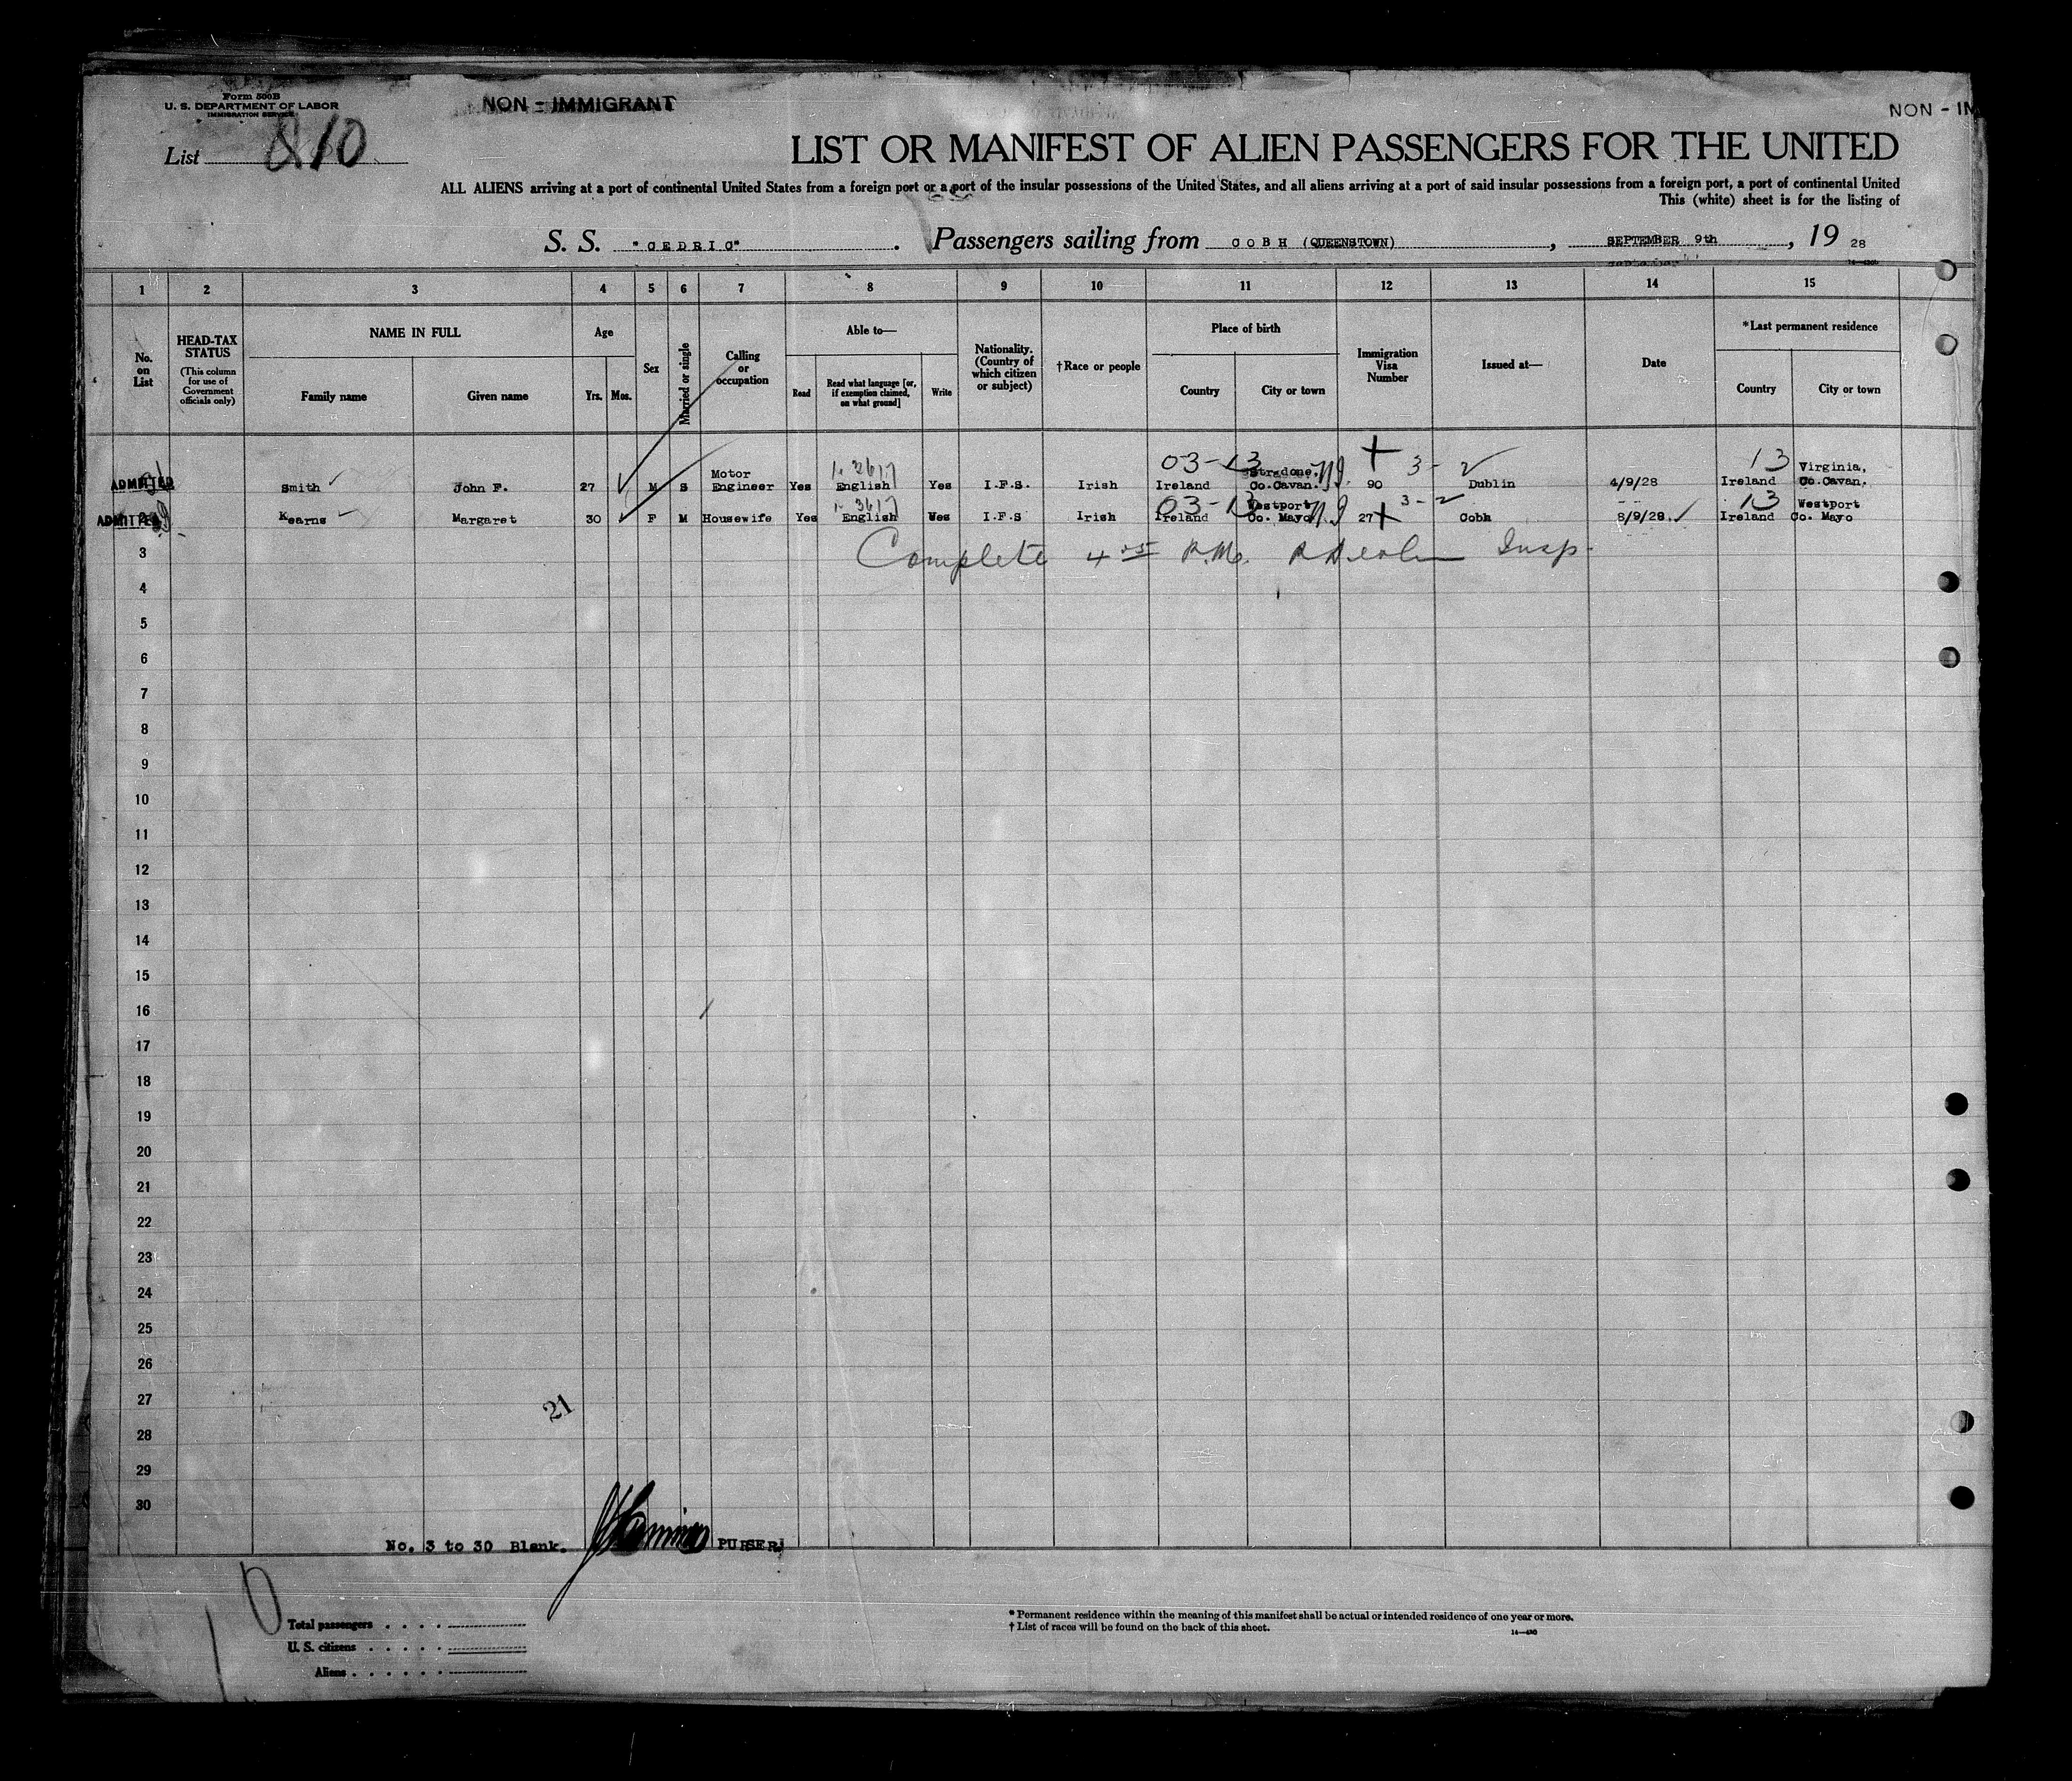 Form 500B
U. S. DEPARTMENT OF LABOR
IMMIGRATION SERVICE
NON - IMMIGRANT
NON - IM
List 10
LIST OR MANIFEST OF ALIEN PASSENGERS FOR THE UNITED
ALL ALIENS arriving at a port of continental United States from a foreign port or a port of the insular possessions of the United States, and all aliens arriving at a port of said insular possessions from a foreign port, a port of continental United
This (white) sheet is for the listing of
S. S. "CEDRIC". Passengers sailing from COBH (QUEENSTOWN), SEPTEMBER 9th, 19 28
1 2 3 4 5 6 7 8 9 10 11 12 13 14 15
No. on List
HEAD-TAX STATUS (This column for use of Government officials only)
NAME IN FULL
Family name Given name
Age
Yrs. Mos.
Sex
Married or single
Calling or occupation
Able to—
Read Read what language [or, if exemption claimed, on what ground] Write
Nationality. (Country of which citizen or subject)
†Race or people
Place of birth
Country City or town
Immigration Visa Number
Issued at—
Date
*Last permanent residence
Country City or town
03-13 3- 13
ADMITTED Smith John F. 27 M S Motor Engineer Yes English Yes I.F.S. Irish Ireland Stradone. Co.Cavan. 90 Dublin 4/9/28 Ireland Virginia, Co.Cavan.
03-13 3- 13
ADMITTED Kearns Margaret 30 F M Housewife Yes English Yes I.F.S Irish Ireland Westport Co. Mayo 27 Cobh 8/9/28. Ireland Westport Co. Mayo
3 Complete 4 P.M. Insp.
4
5
6
7
8
9
10
11
12
13
14
15
16
17
18
19
20
21
22
23
24
25
26
27
21
28
29
30
No. 3 to 30 Blank. PURSER
Total passengers
U. S. citizens
Aliens
* Permanent residence within the meaning of this manifest shall be actual or intended residence of one year or more.
† List of races will be found on the back of this sheet.